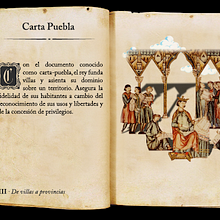 Carta Puebla
Con el documento conocido
como carta-puebla, el rey funda
villas y asienta su dominio
sobre un territorio. Asegura la
fidelidad de sus habitantes a cambio del
reconocimiento de sus usos y libertades y
de la concesión de privilegios.
III - De villas a provincias